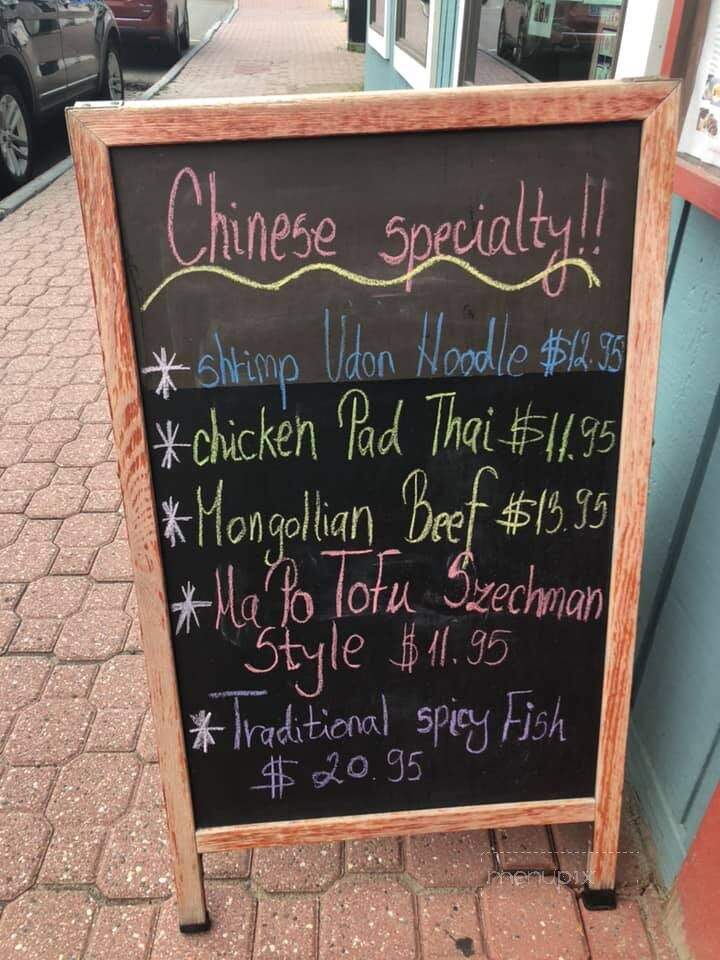 Chinese specialty!!
* shrimp Udon Noodle $12.95
* chicken Pad Thai $11.95
* Mongollian Beef $13.95
* Ma Po Tofu Szechman
Style $11.95
* Traditional spicy Fish
$20.95
menupix